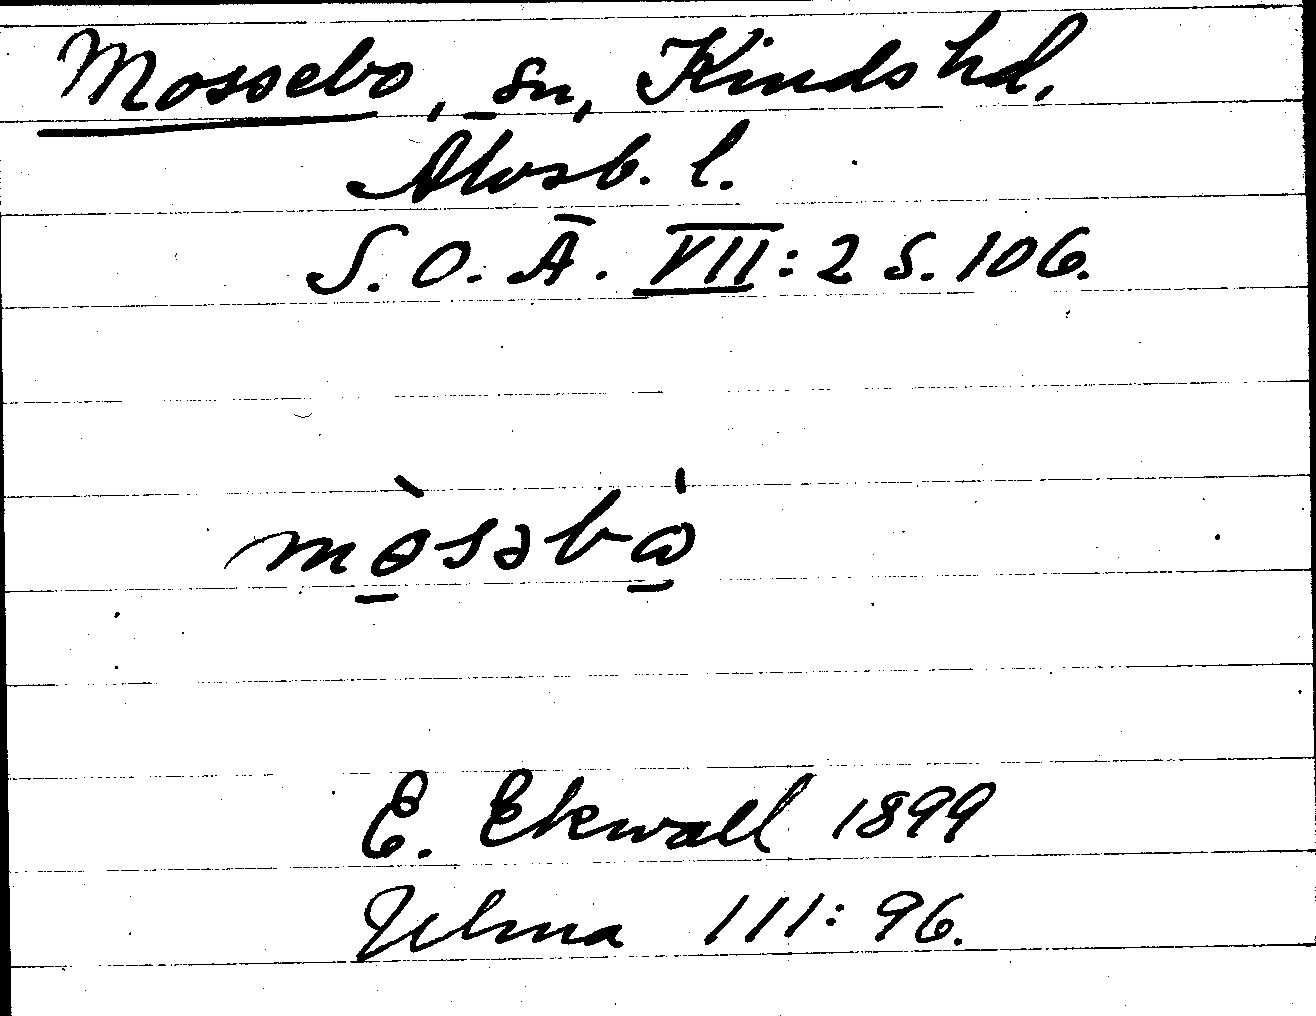 Mossebo, sn, Kinds hd,
Älvsb. l.
S. O. Ä. VII: 2 S. 106.
mòsəbò
E. Ekwall 1899
Ulma 111: 96.